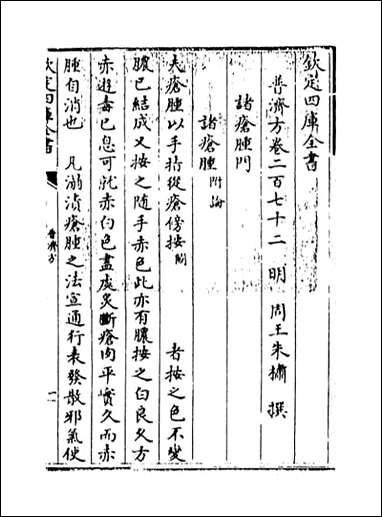 欽定四庫全書
普濟方卷二百七十二 明 周王朱橚 撰
諸瘡腫門
諸瘡腫附論
夫瘡腫以手指從瘡傍按闕 者按之色不變
膿已結成又按之隨手赤色此亦有膿按之白良久方
赤遊毒已息可就赤白色盡處灸斷瘡肉平實久而赤
腫自消也 凡溺漬瘡腫之法宣通行表發散邪氣使
欽定四庫全書
普濟方
一